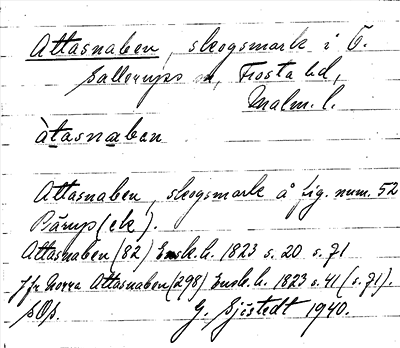 Attasnaben, skogsmark i Ö.
Sallerups sn, Frosta hd,
Malm. l.
àtasnaban
Attasnaben, skogsmark å fig. num. 52
Pärup (ek).
Attasnaben (82) Ensk. h. 1823 s. 20 s. 71
Jfr Norra Attasnaben (298) Ensk. h. 1823 s. 41 (s. 71).
G. Sjöstedt 1940.